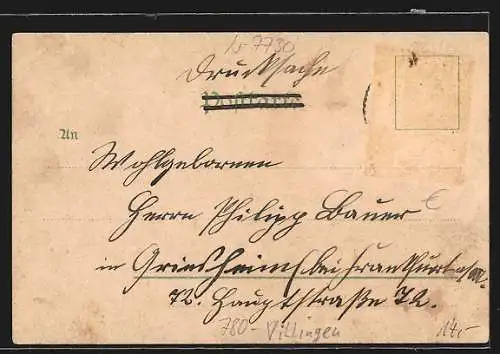 7730
Drucksache
Postkarte
An
Wohlgebornen
Herrn Philipp Bauer
in Griesheim bei Frankfurt a/M.
72. Hauptstraße 72.
780- Villingen